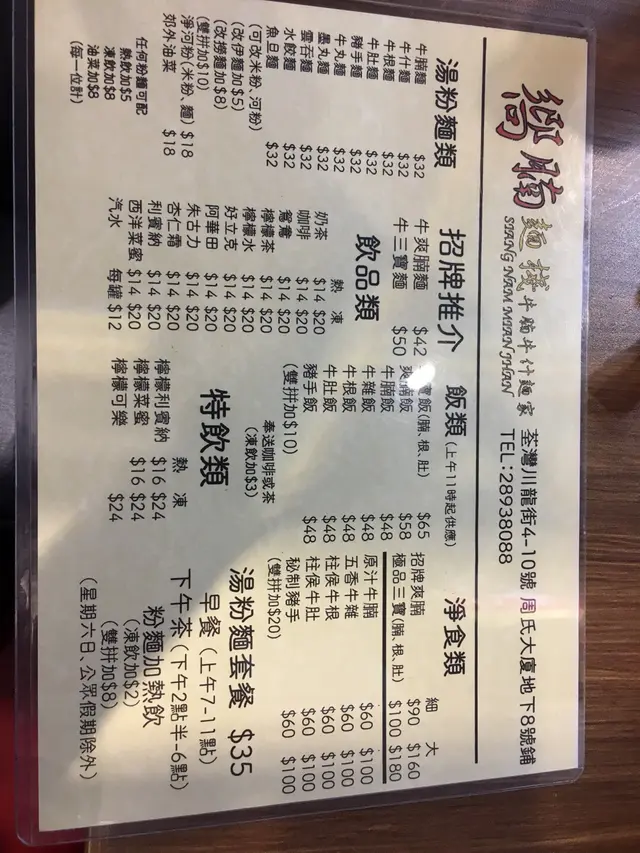 嚮腩麵摶牛腩牛什麵家
SIANG NAM MIAN JHAN
荃灣川龍街4-10號 周氏大廈地下8號鋪
TEL:28938088
湯粉麵類
牛腩麵 $32
牛什麵 $32
牛根麵 $32
牛肚麵 $32
豬手麵 $32
牛丸麵 $32
墨丸麵 $32
雲吞麵 $32
水餃麵 $32
魚旦麵 $32
(可改米粉, 河粉)
(改伊麵加$5)
(改撈麵加$8)
(雙拼加$10)
淨河粉(米粉、麵) $18
郊外油菜 $18
任何粉麵可配
熱飲加$5
凍飲加$8
油菜加$8
(每一位計)
招牌推介
牛爽腩麵 $42
牛三寶麵 $50
飲品類
熱 凍
奶茶 $14 $20
咖啡 $14 $20
鴛鴦 $14 $20
檸檬茶 $14 $20
檸檬水 $14 $20
好立克 $14 $20
阿華田 $14 $20
朱古力 $14 $20
杏仁霜 $14 $20
利賓納 $14 $20
西洋菜蜜 $14 $20
汽水 每罐 $12
飯類(上午11時起供應)
寶飯(腩、根、肚) $65
爽腩飯 $58
牛腩飯 $48
牛雜飯 $48
牛根飯 $48
牛肚飯 $48
豬手飯 $48
(雙拼加$10)
奉送咖啡或茶
(凍飲加$3)
特飲類
熱 凍
檸檬利賓納 $16 $24
檸檬菜蜜 $16 $24
檸檬可樂 $24
淨食類
細 大
招牌爽腩 $90 $160
極品三寶(腩、根、肚) $100 $180
原汁牛腩 $60 $100
五香牛雜 $60 $100
柱侯牛根 $60 $100
柱侯牛肚 $60 $100
秘制豬手 $60 $100
(雙拼加$20)
湯粉麵套餐 $35
早餐 (上午7-11點)
下午茶(下午2點半-6點)
粉麵加熱飲
(凍飲加$2)
(雙拼加$8)
(星期六日、公眾假期除外)